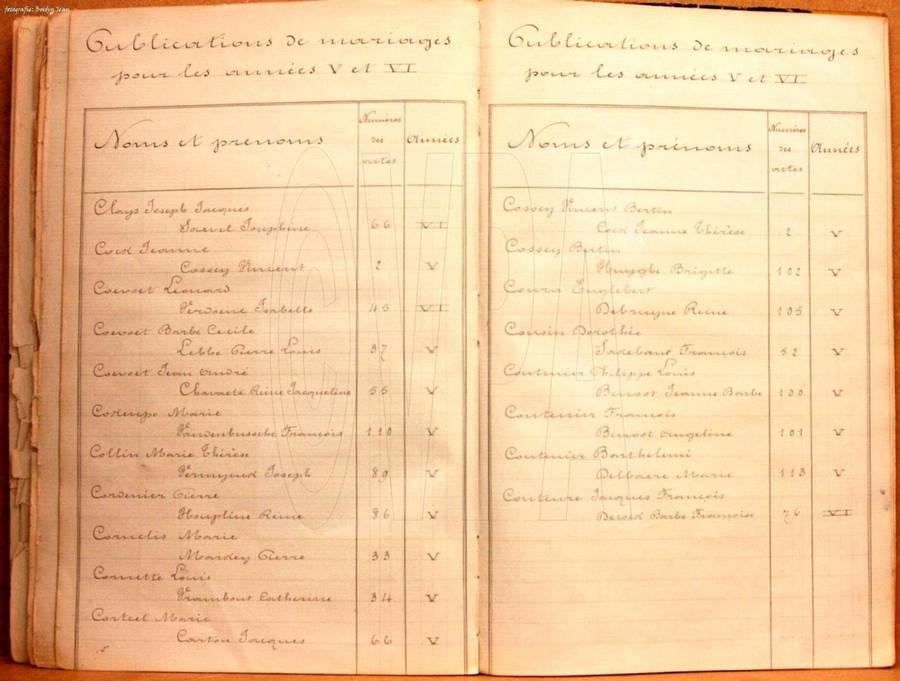 fotografie: Boidyn Jean
Publications de mariages
pour les années V et VI
Noms et prenoms
Numéros des actes
Années
Clays Joseph Jacques
Josephine 66 VI
Coed Jeanne
Cossey Vincent 2 V
Coevoet Léonard
Isabelle 45 VI
Coevoet Barbe Cecile
Lebbe Pierre Louis 37 V
Coevoet Jean André
Chavaete Reine Jacqueline 55 V
Marie
Vandenbussche François 110 V
Collin Marie Thérèse
Joseph 89 V
Cordenier Pierre
Houpline Reine 86 V
Cornelis Marie
Pierre 33 V
Cornette Louis
Catherine 34 V
Corteel Marie
Carton Jacques 66 V
Publications de mariages
pour les années V et VI
Noms et prénoms
Numéros des actes
Années
Cossey Vincent Bertin
Coed Jeanne Thérèse 2 V
Cossey Bertin
Huyghe Brigitte 102 V
Englebert
Debruyne Reine 105 V
Cousin Dorothée
François 52 V
Coutenier Philippe Louis
Jeanne Barbe 100 V
Coutenier François
Angeline 101 V
Coutenier Barthelemi
Delbaere Marie 113 V
Jacques François
Barbe Françoise 76 VI